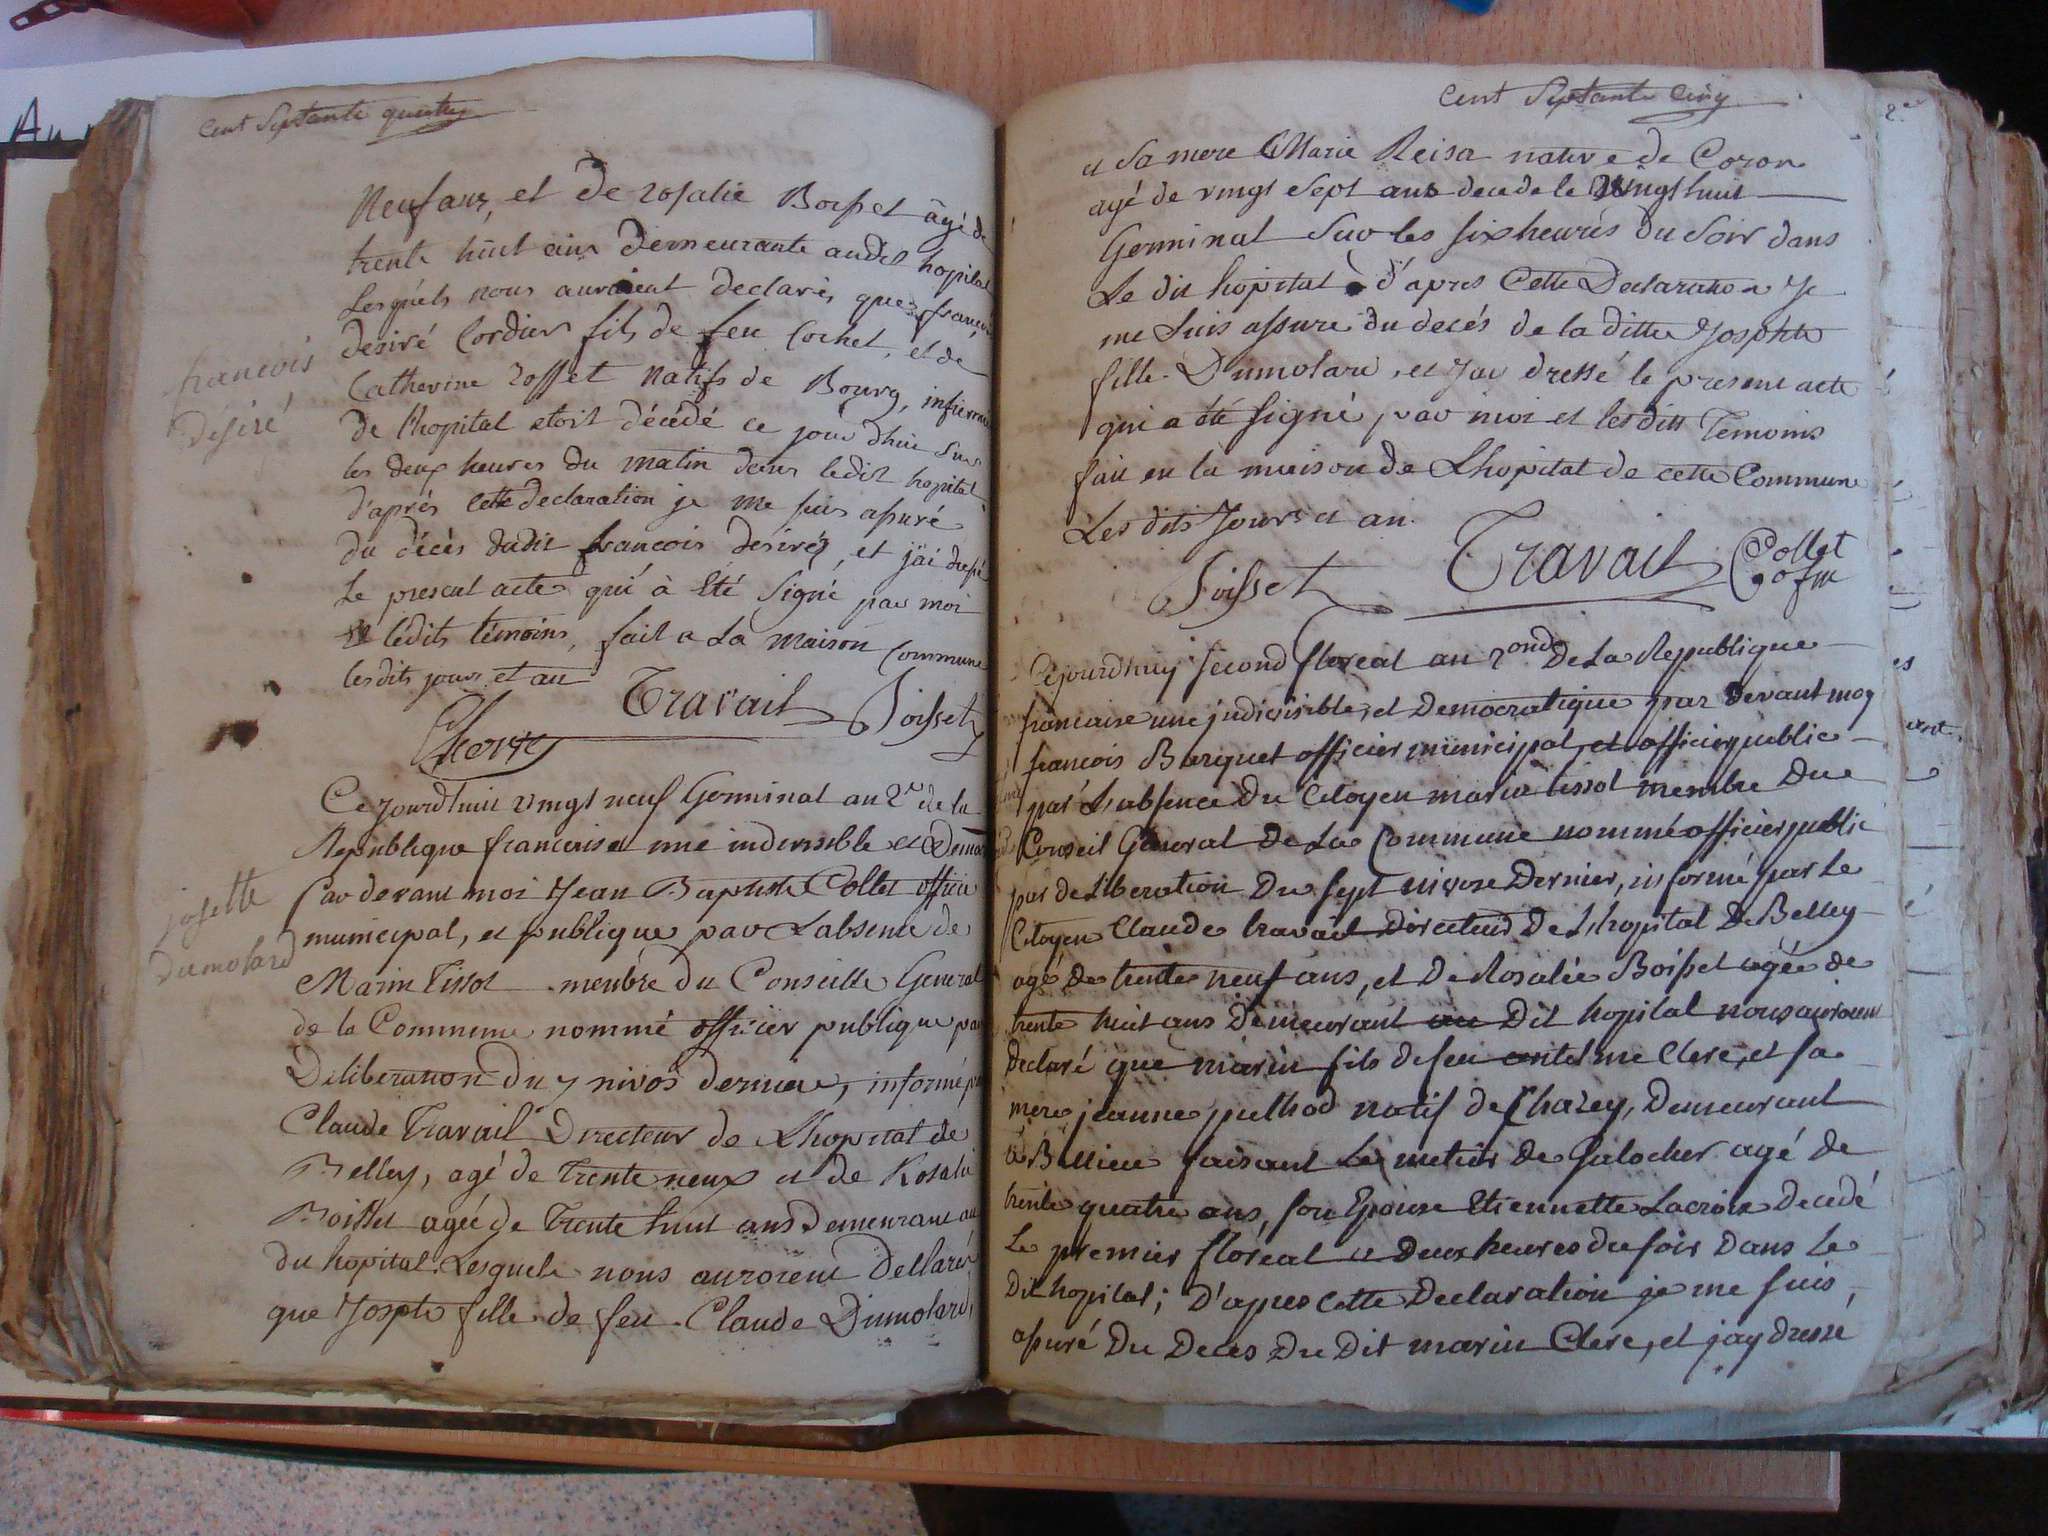 Cent Septante quatre
Neuf ans, et de rosalie Boisset âgé de
trente huit ans demeurante audit hopital
Lesquels nous auroient declarés que françois
desiré Cordier fils de feu Cochet, et de
Catherine Rosset natifs de Bourg, infirmier
de l'hopital etoit décédé ce jour dhui sur
les deux heures du matin dans ledit hopital
d'aprés cette declaration je me suis assuré
du décès dudit francois desiré, et j'ai dressé
Le present acte qui à Eté Signé par moi
et lédits témoins, fait a La maison Commune
lesdits jour et an
Travail Boisset
francois
désiré
Ce jourdhuit vingt neuf Germinal an 2e de la
Republique francaise une indivisible et Democ
Par devant moi Jean Baptiste Collet officie
municipal, et publique par Labsence de
Marin Tissot membre du Conseille General
de la Commune nommé officier publique par
Deliberation du 7 nivos dernier, informé par
Claude Travail Directeur de Lhopital de
Belley, agé de trente neux et de Rosalie
Boisset agée de trente huit ans demeurant au
du hopital. Lesquels nous auroient Dellarés
que Josphte fille de feu Claude Dumolard,
josette
dumolard
Cent Septante Cinq
et Sa mere Marie Reisa native de Coron
agé de vingt Sept ans decede le vingt huit
Germinal Sur les six heurés du Soir dans
Le dit hopital d'apres Cette Declaration Je
me Suis assure du decés de la ditte Josphte
fille Dumolard, et Jai dressé le present acte
qui a été Signé, par moi et les dits Temoins
fait en la maison de Lhopital de cette Commune
Les dits Jours et an.
Boisset Travail Collet
ofm
Cejourdhuy second floreal an 2ond De La Republique
francaise une judivisible, et Democratique par Devant moy
francois Barquet officier municipal, et officier public
par L'absence Du Citoyen marin tissot membre Du
Conseil General De La Commune nommé officier public
par deliberation Du sept nivose Dernier, informé par Le
Citoyen Claude travail Directeur De Lhopital De Belley
agé de trente neuf ans, et De Rosalée Boisset agée de
trente huit ans Demeurant au Dit hopital nous auroient
Declaré que marin fils de feu antelme Clerc, et sa
mere jeanne pulhod natif de Chazey, Demeurant
à Billieu faisant Le metier De Galocher agé de
trente quatre ans, son Epouse Etiennette Lacroix Decedé
Le premier floreal a Deux heures du soir Dans Le
Dit hopital; D'apres cette Declaration je me suis,
assuré Du Deces Du Dit marin Clerc, et j'ay dressé